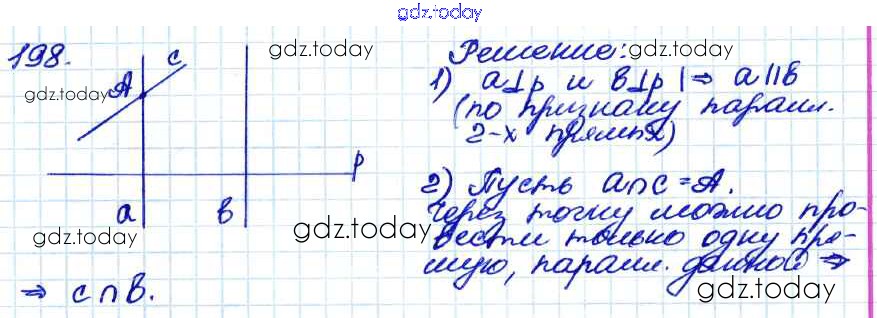 gdz.today
198.
c
A
p
a
b
gdz.today
gdz.today
gdz.today
gdz.today
Решение: gdz.today
1) a⊥p и b⊥p |⇒ a||b
(по признаку паралл.
2-х прямых)
gdz.today
2) Пусть a∩c = A.
Через точку можно про-
вести только одну пря-
мую, паралл. данной ⇒
gdz.today
⇒ c∩b.